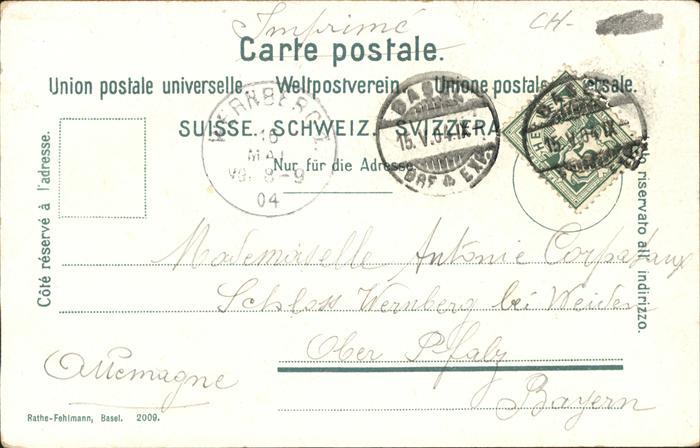 Imprimé
CH-
Carte postale.
Union postale universelle. Weltpostverein. Unione postale
SUISSE. SCHWEIZ. SVIZZERA.
Nur für die Adresse
Côté réservé à l'adresse.
riservato all' indirizzo.
WERNBERG
16
MAI
8-9
04
BASEL
15.V.04.IX
BRF & EXP.
15.V.04.IX
Mademoiselle Antonie
Schloss Wernberg bei Weiden
Ober Pfalz
Allemagne
Bayern
Rathe-Fehlmann, Basel. 2009.